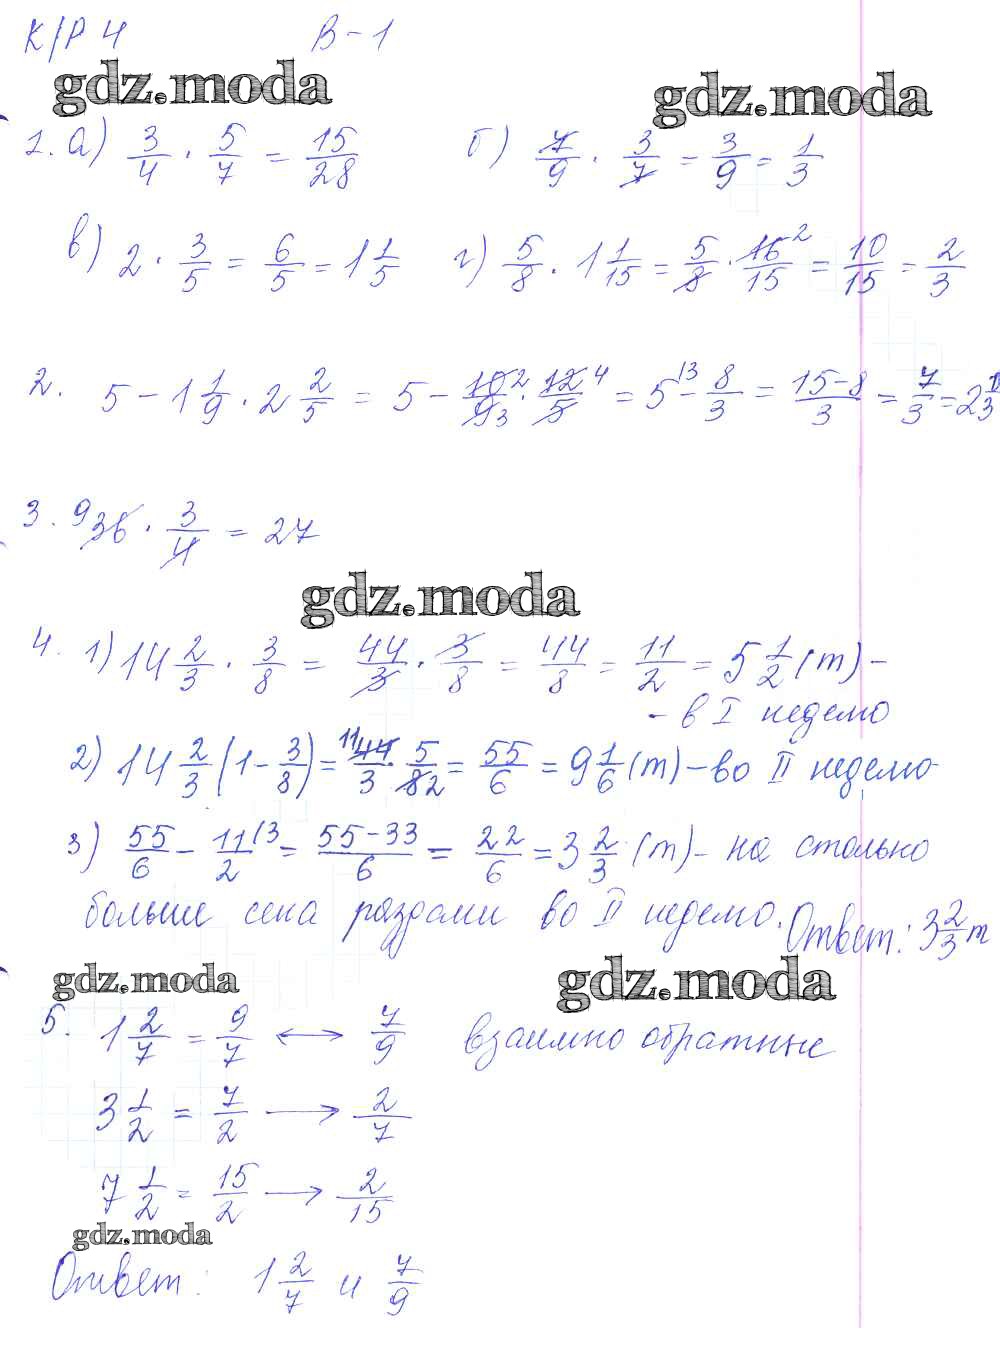 К/Р 4 В-1
gdz.moda gdz.moda
1. а) 3/4 · 5/7 = 15/28 б) 7/9 · 3/7 = 3/9 = 1/3
в) 2 · 3/5 = 6/5 = 1 1/5 г) 5/8 · 1 1/15 = 5/8 · 16/15 2 = 10/15 = 2/3
2. 5 - 1 1/9 · 2 2/5 = 5 - 10 2/9 3 · 12 4/5 = 5 (3 - 8/3 = 15-8/3 = 7/3 = 2 1/3
3. 9 36 · 3/4 = 27
gdz.moda
4. 1) 14 2/3 · 3/8 = 44/3 · 3/8 = 44/8 = 11/2 = 5 1/2 (т) -
- в I неделю
2) 14 2/3 (1 - 3/8) = 11 44/3 · 5/8 2 = 55/6 = 9 1/6 (т) - во II неделю
3) 55/6 - 11/2 (3 = 55-33/6 = 22/6 = 3 2/3 (т) - на столько
больше сена раздали во II неделю. Ответ: 3 2/3 т
gdz.moda gdz.moda
5. 1 2/7 = 9/7 ↔ 7/9 взаимно обратные
3 1/2 = 7/2 → 2/7
7 1/2 = 15/2 → 2/15
gdz.moda
Ответ: 1 2/7 и 7/9